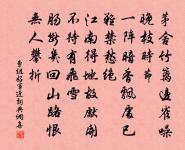 茅舍竹籬邊雀噪
晚枝時節
一陣暗香飄處已
難禁愁絕
江南得地故開
不待有飛雪
腸斷幾回山路恨
無人攀折
曹組好事近詞典網